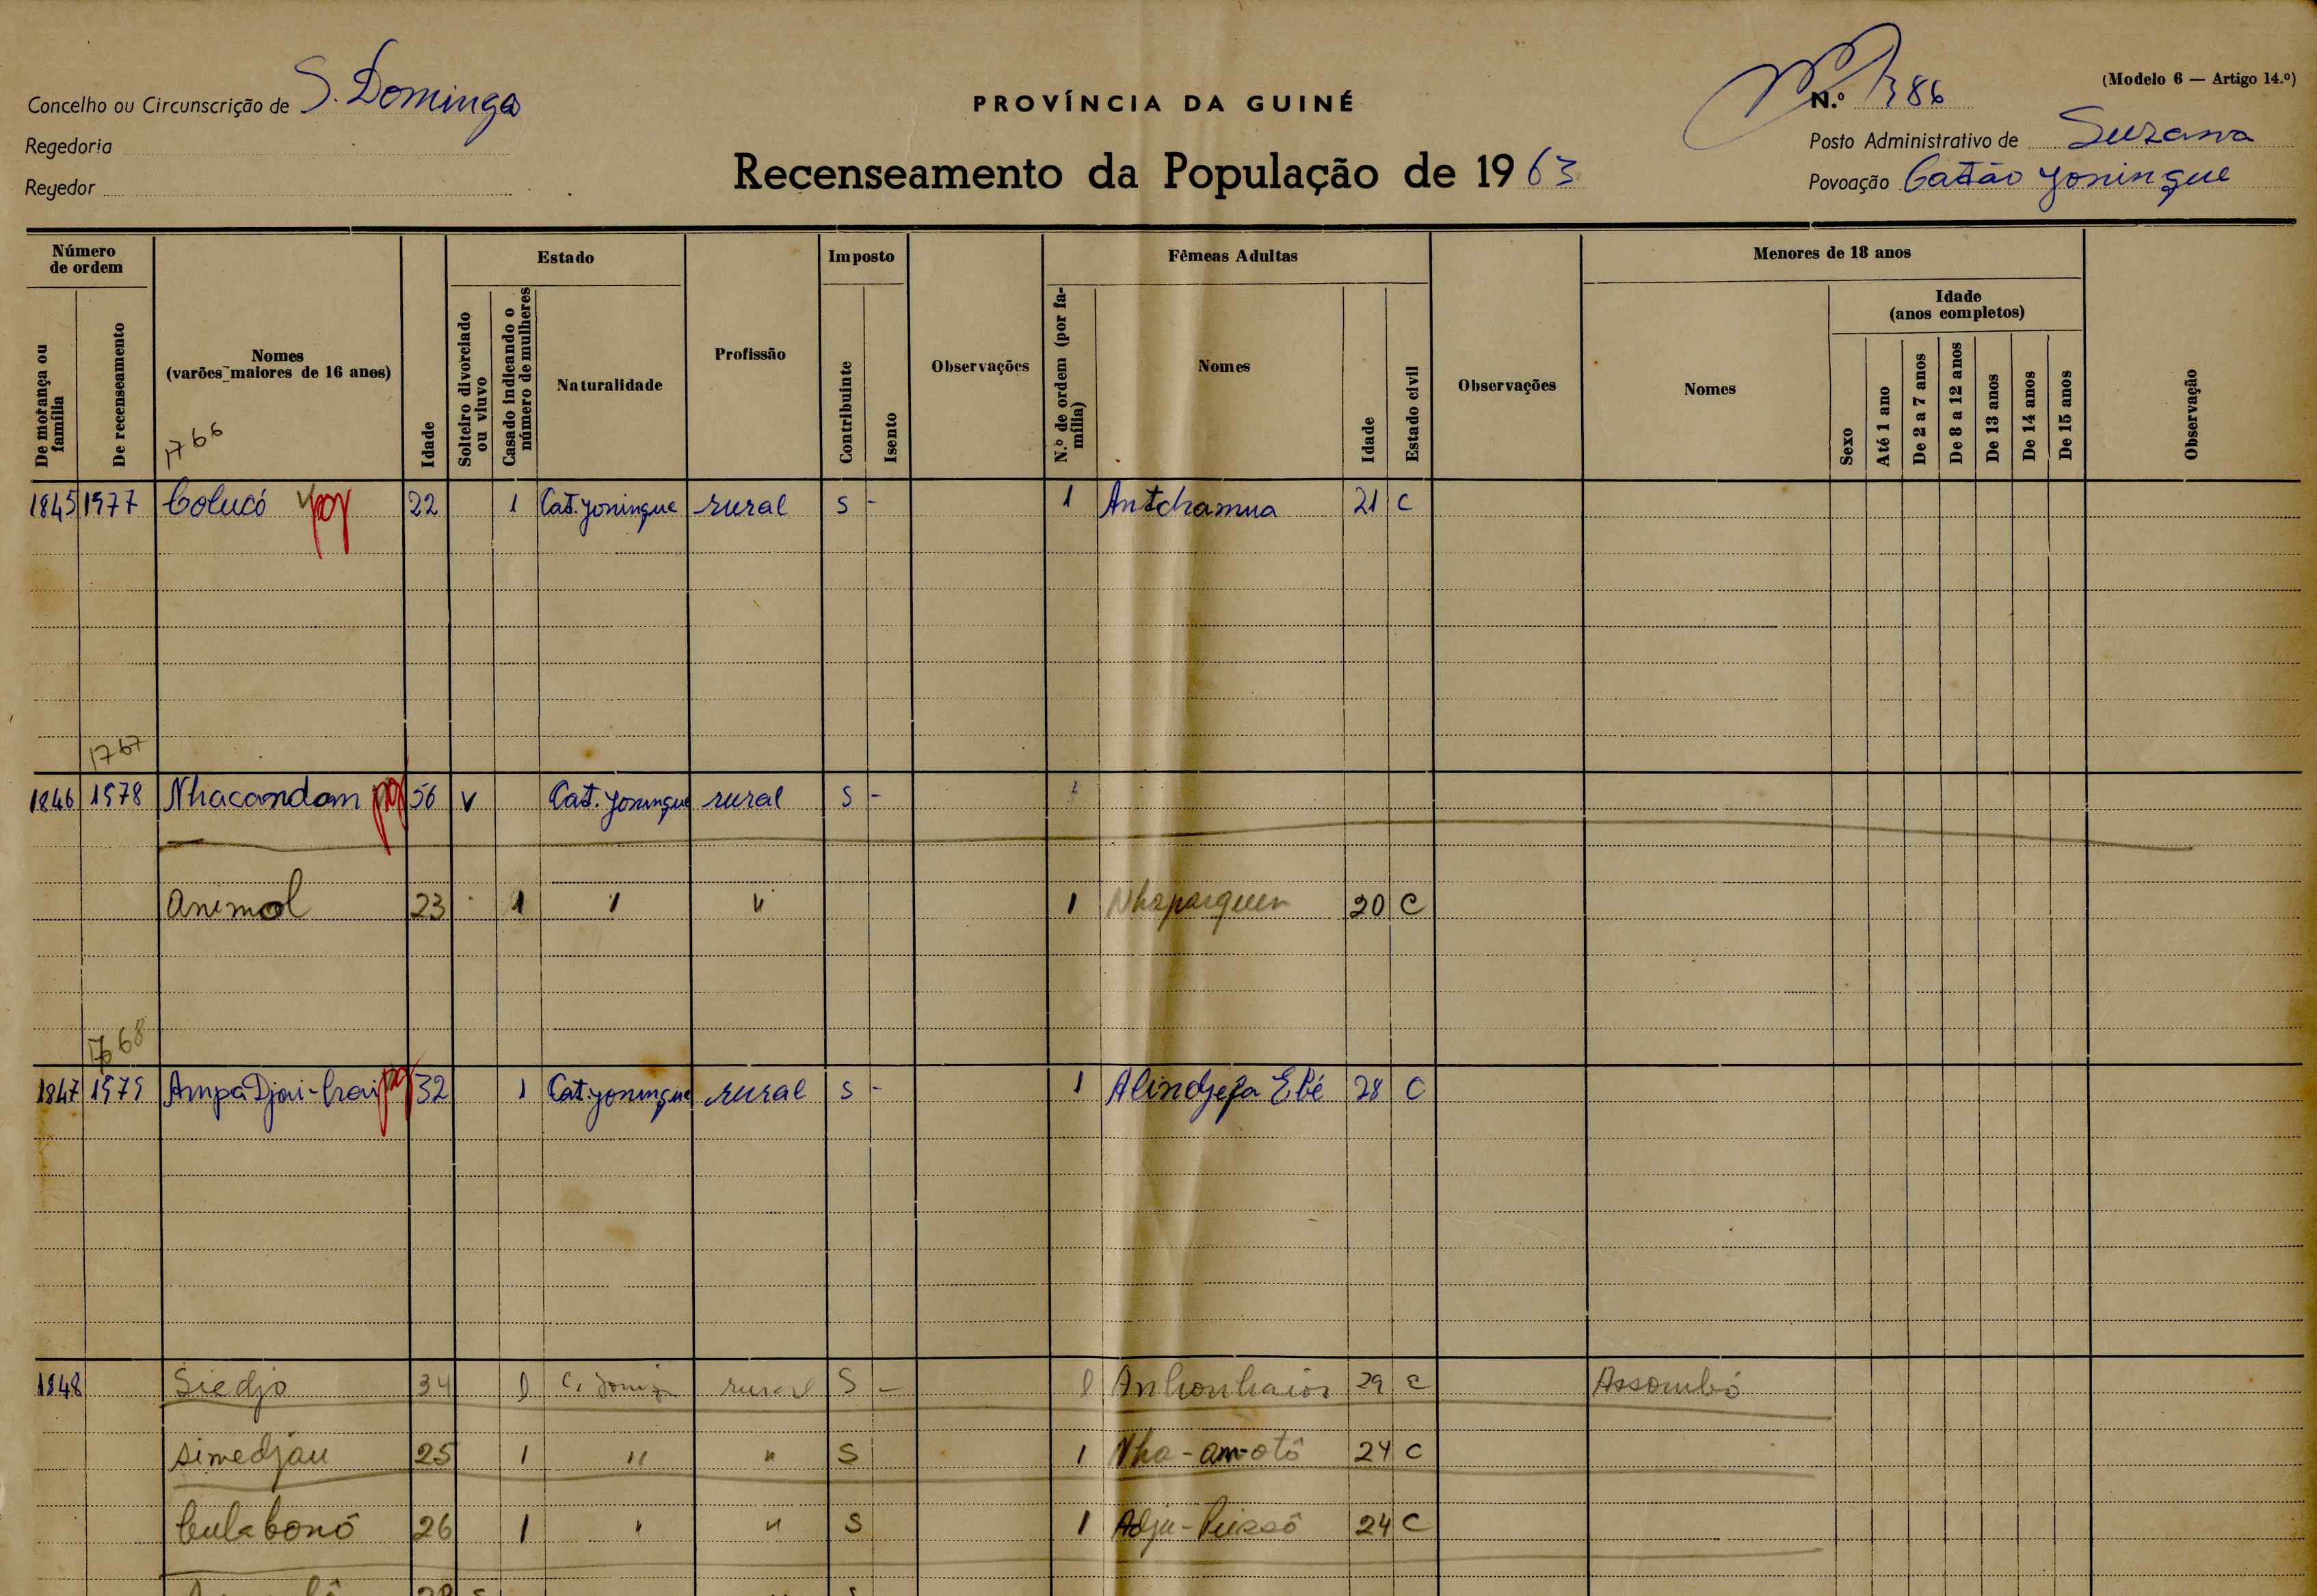 (Modelo 6 — Artigo 14.º)
Concelho ou Circunscrição de S. Domingos
PROVÍNCIA DA GUINÉ
N.º 386
Regedoria
Posto Administrativo de Suzana
Regedor
Recenseamento da População de 1963
Povoação Catão Joningue
Número de ordem
Estado
Imposto
Fêmeas Adultas
Menores de 18 anos
De morança ou família
De recenseamento
Nomes
(varões maiores de 16 anos)
Idade
Solteiro divorciado ou viuvo
Casado indicando o número de mulheres
Naturalidade
Profissão
Contribuinte
Isento
Observações
N.º de ordem (por família)
Nomes
Idade
Estado civil
Observações
Nomes
Idade
(anos completos)
Sexo
Até 1 ano
De 2 a 7 anos
De 8 a 12 anos
De 13 anos
De 14 anos
De 15 anos
Observação
1766
1845 1977 Colucó pg 22 1 Cat. Joningue rural S - 1 Antchamua 21 C
1767
1846 1978 Nhacandam pg 56 V Cat. Joningue rural S -
Animol 23 1 " " 1 Nhaparguen 20 C
1768
1847 1979 Ampa Djai- pg 32 1 Cat. Joningue rural S - 1 Ebé 28 C
1848 Siedjo 34 1 rural S - 1 29 C Assombó
Simedjau 25 1 " " S 1 Nha-am-otô 24 C
Culabonó 26 1 " " S 1 24 C